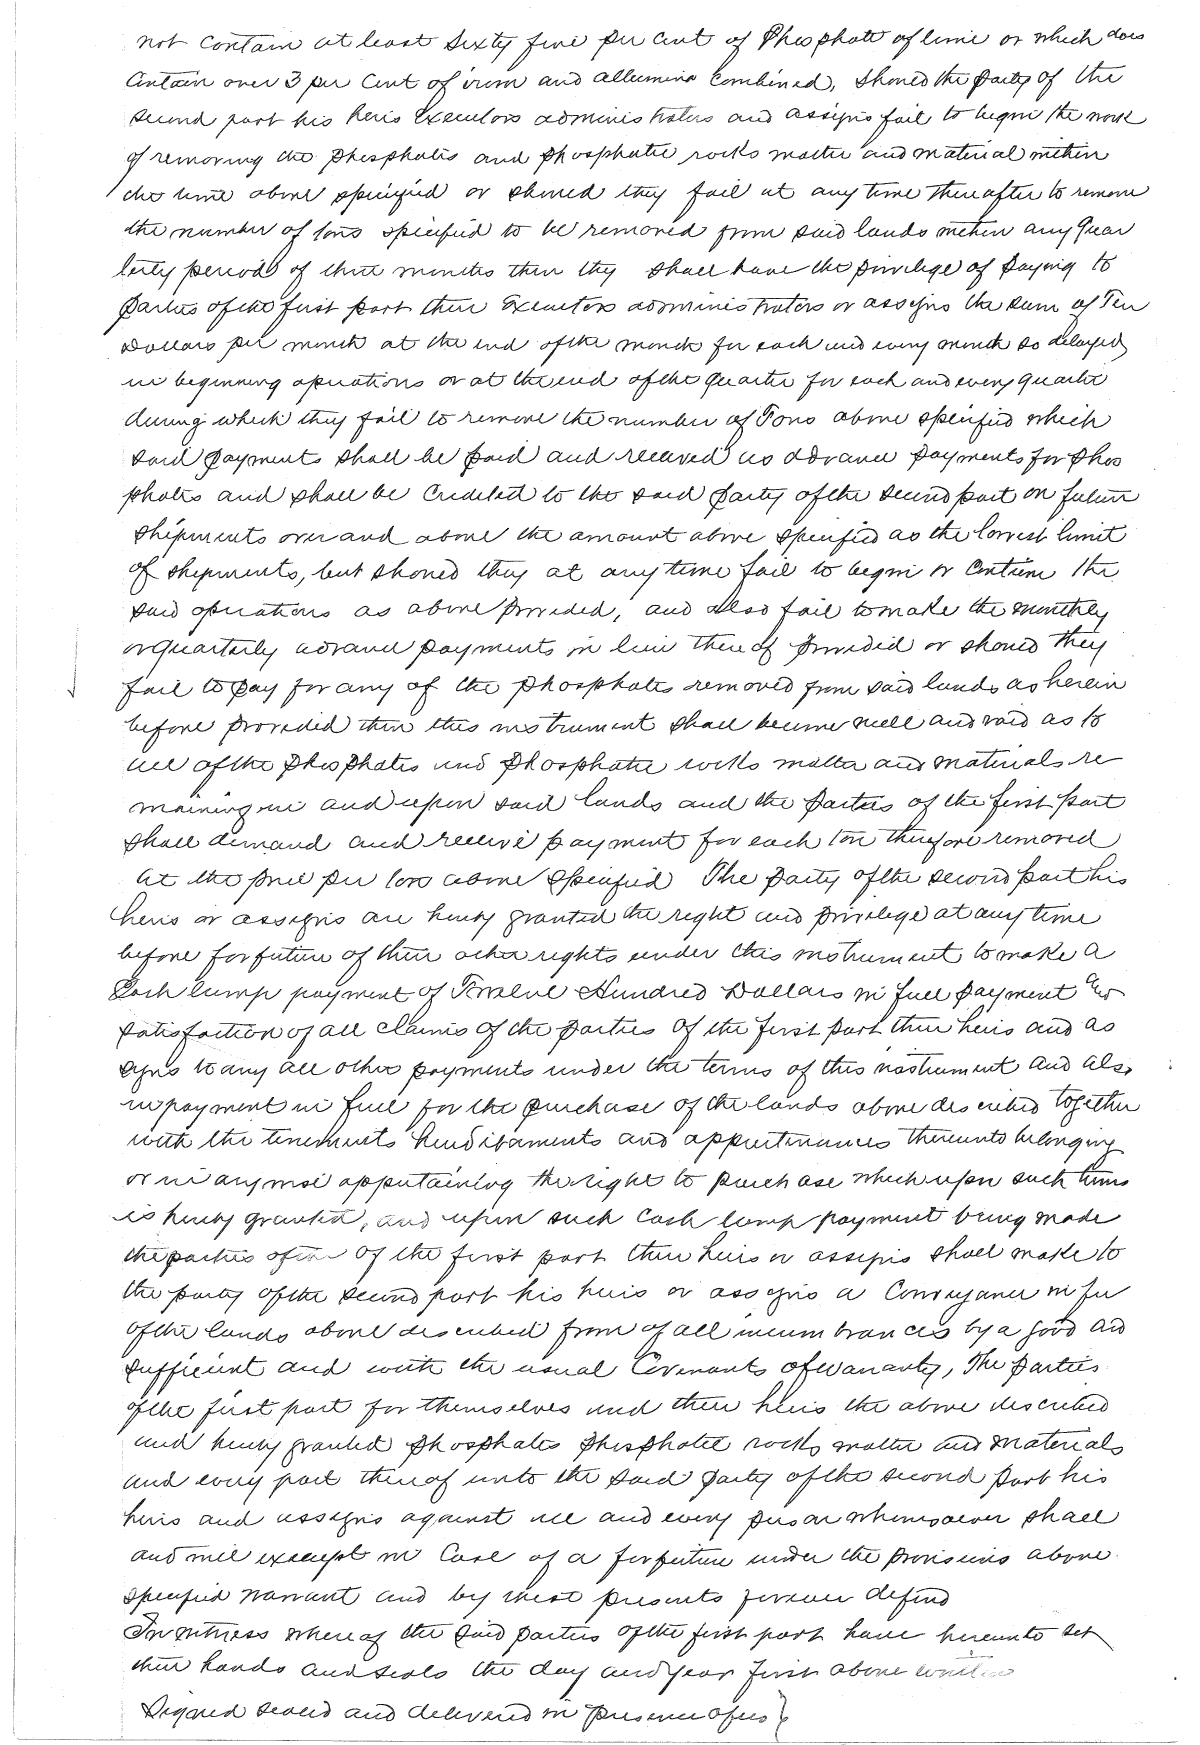 not contain at least Sixty five per cent of Phosphate of lime or which does
Contain over 3 per Cent of iron and allumina Combined, Should the party of the
second part his heirs Executors administrators and assigns fail to begin the work
of removing the phosphates and phosphatic rocks matter and material within
the time above specified or should they fail at any time thereafter to remove
the number of tons specified to be removed from said lands within any Quar
terly period of three months then they shall have the privilege of paying to
parties of the first part their Executors administrators or assigns the sum of Ten
Dollars per month at the end of the month for each and every month so delayed
in beginning operations or at the end of the quarter for each and every quarter
during which they fail to remove the number of Tons above specified which
said payments shall be paid and received as advance payments for Phos
phates and shall be Credited to the said party of the second part on future
shipments over and above the amount above specified as the lowest limit
of shipments, but should they at any time fail to begin or Continue the
said operations as above provided, and also fail to make the monthly
or quarterly advance payments in lieu thereof provided or should they
fail to pay for any of the phosphates removed from said lands as herein
before provided then this instrument shall become null and void as to
all of the phosphates and phosphatic rocks matter and materials re
maining in and upon said lands and the parties of the first part
shall demand and receive payment for each ton therefore removed
at the price per ton above specified The party of the second part his
heirs or assigns are hereby granted the right and privilege at any time
before forfuture of their other rights under this instrument to make a
Cash lump payment of Twelve Hundred Dollars in full payment and
satisfaction of all claims of the parties of the first part their heirs and as
signs to any all other payments under the terms of this instrument and also
in payment in full for the purchase of the lands above described together
with the tenements hereditaments and appurtenances thereunto belonging
or in any wise appertaining the right to purchase which upon such terms
is hereby granted, and upon such Cash lump payment being made
the parties of the of the first part their heirs or assigns shall make to
the party of the second part his heirs or assigns a Conveyance in fee
of the lands above described from of all incumbrances by a good and
sufficient and with the usual Covenants of warranty, The parties
of the first part for themselves and their heirs the above described
and hereby granted phosphates phosphatic rocks matter and materials
and every part thereof unto the said party of the second part his
heirs and assigns against all and every person whomsoever shall
and will except in Case of a forfeiture under the provisions above
specified warrant and by these presents forever defend
In witness whereof the said parties of the first part have hereunto set
their hands and seals the day and year first above written
Signed sealed and delivered in presence of us }